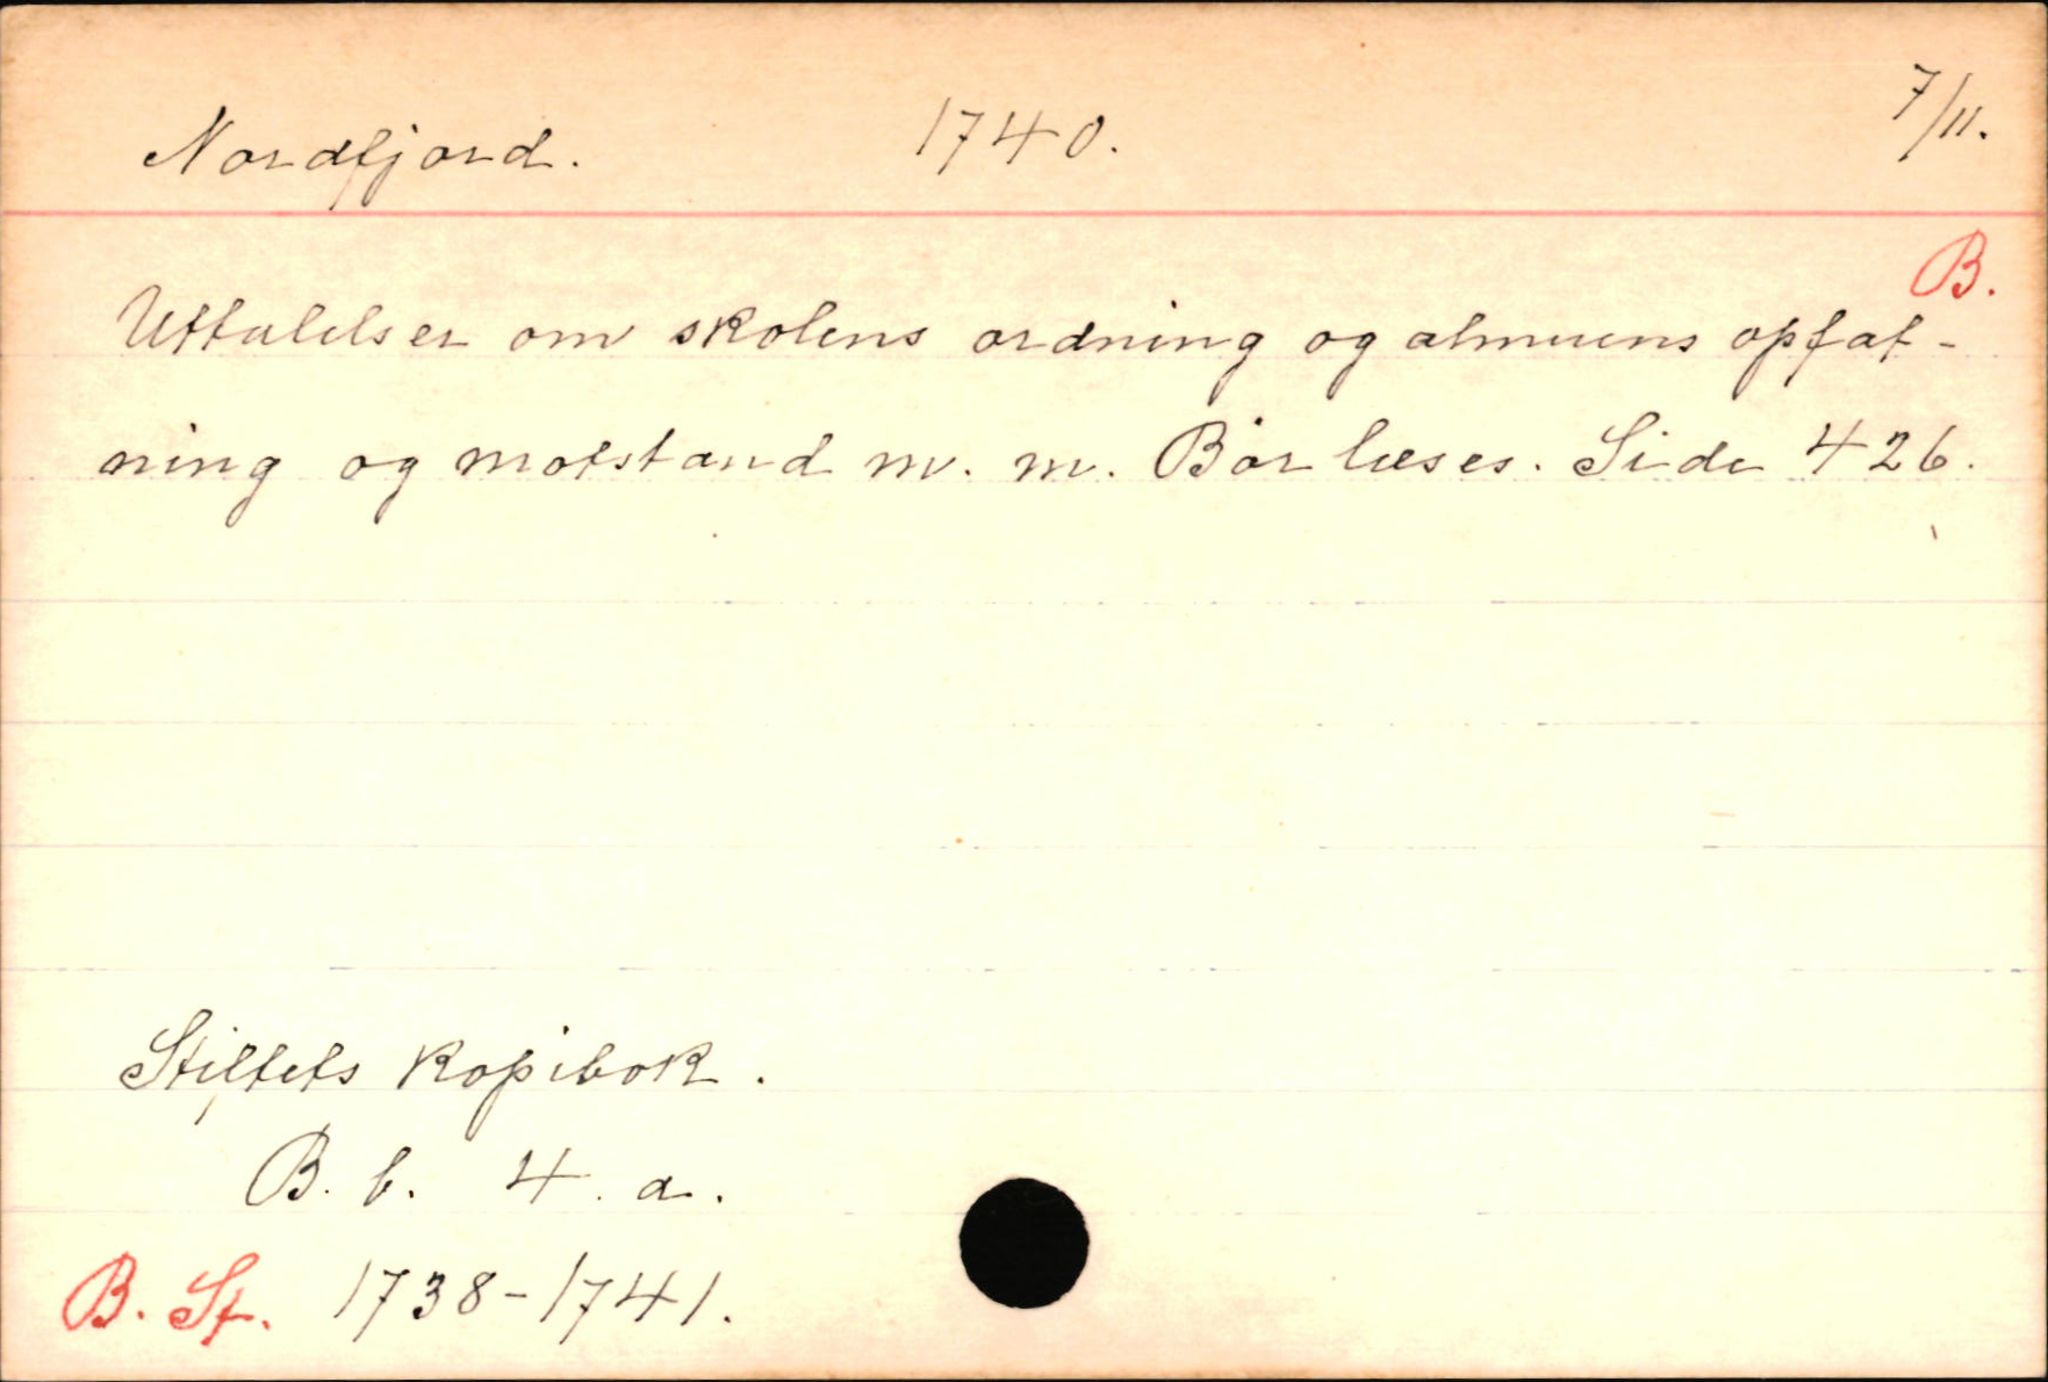 Nordfjord. 1740. 7/11.
B.
Uttalelser om skolens ordning og almuens opfat-
ning og motstand m. m. Bør læses. Side 426.
Stiftets kopibok.
B. b. 4. a.
B. St. 1738-1741.